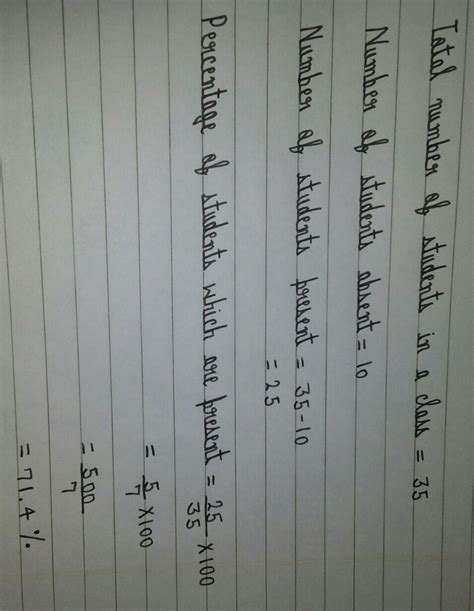 Total number of students in a class = 35
Number of students absent = 10
Number of students present = 35-10
= 25
Percentage of students which are present = 25/35 ×100
= 5/7 ×100
= 500/7
= 71.4%